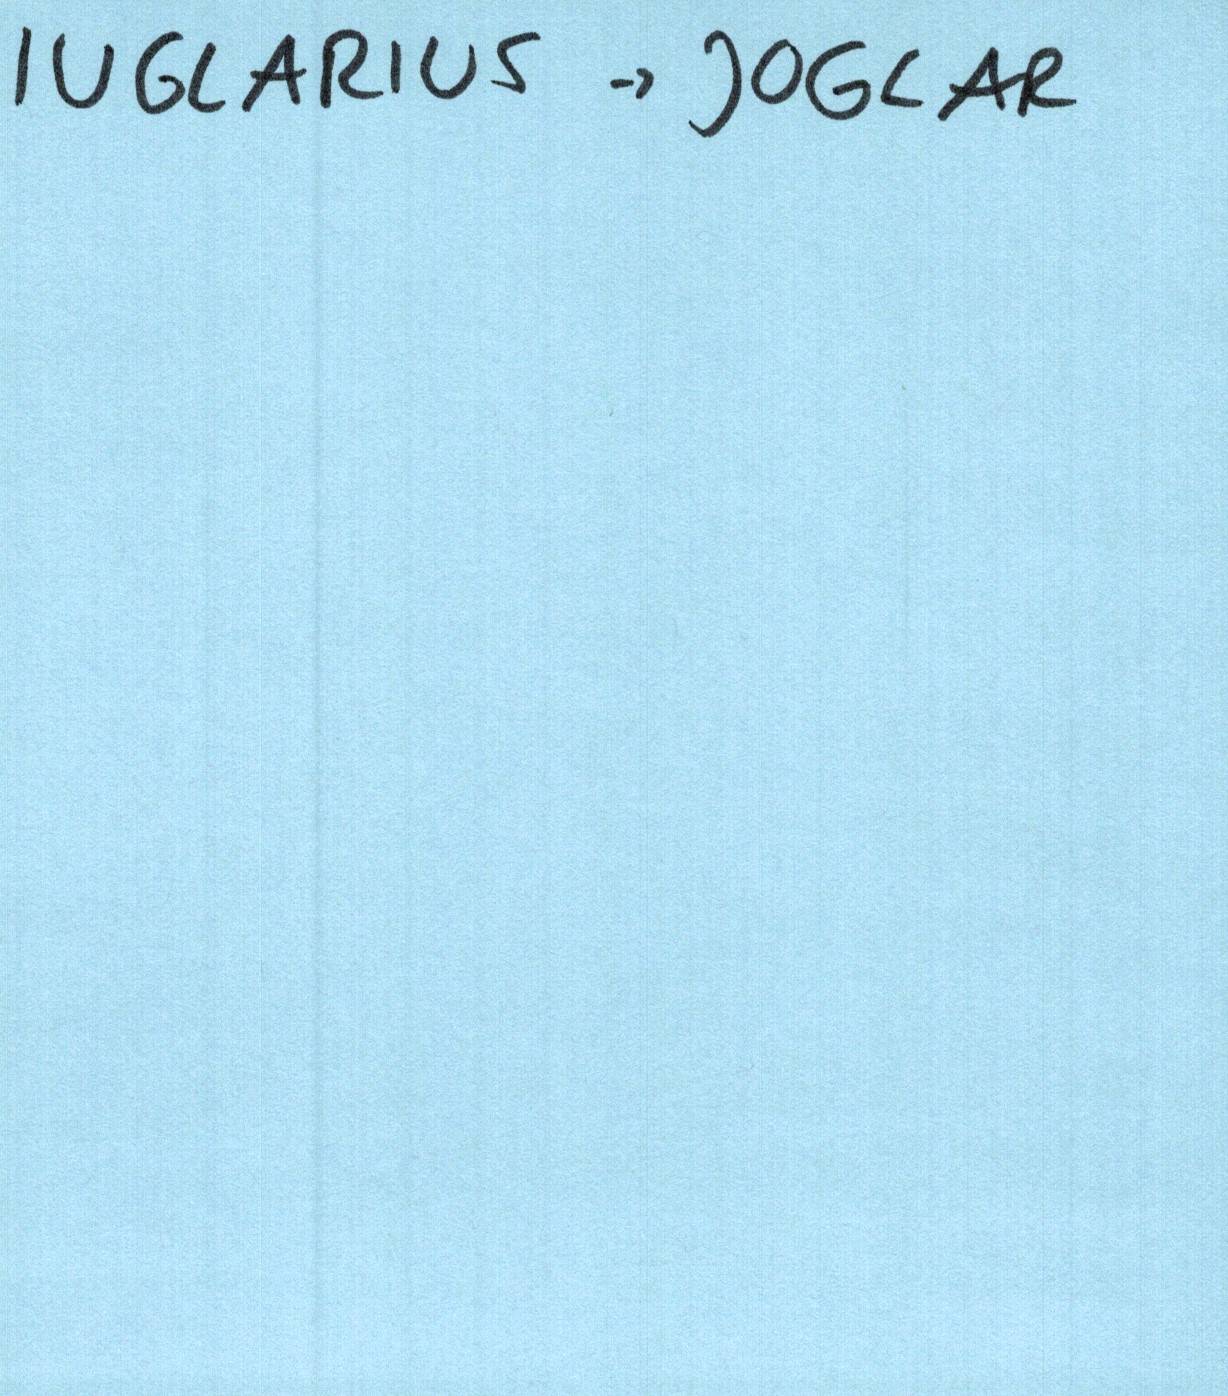 IUGLARIUS -> JOGLAR